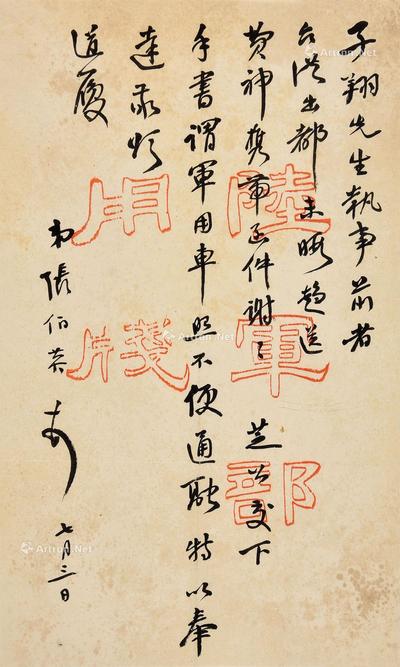 子翔先生執事前者
台從出都未暇趨送
費神携帶函件謝〻 芝公交下
手書謂軍用車照不便通融特以奉
達敬頌
道履
弟張伯英
七月三日
陸軍部
用牋
Artron.Net